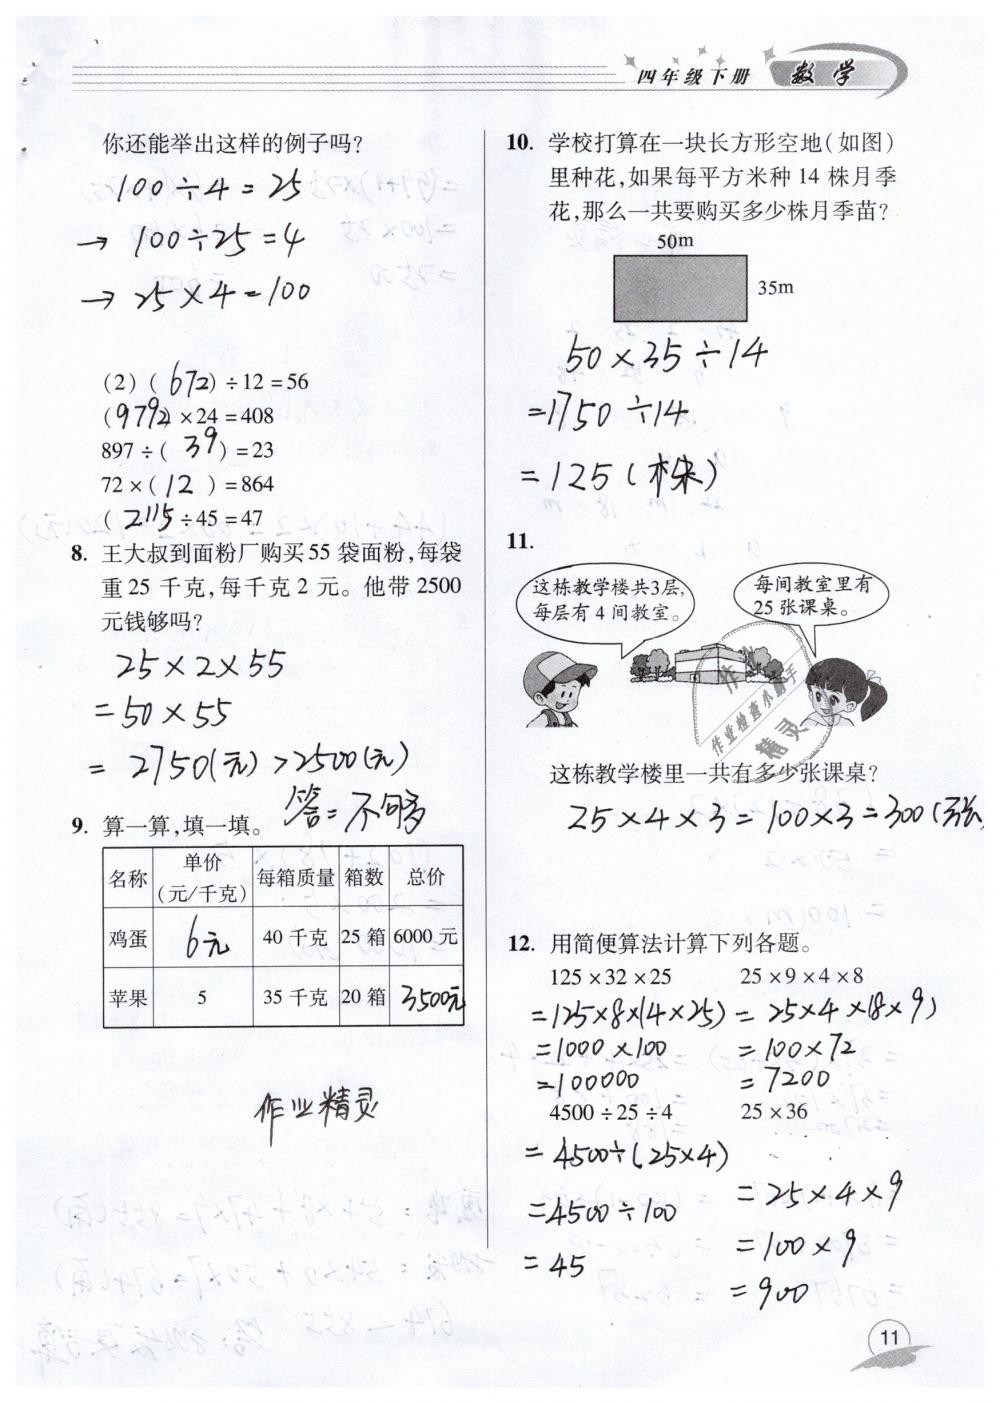 四年级下册 数学
你还能举出这样的例子吗?
100÷4=25
→ 100÷25=4
→ 25×4=100
(2) (672)÷12=56
(9792)×24=408
897÷(39)=23
72×(12)=864
(2115÷45=47
8. 王大叔到面粉厂购买55袋面粉,每袋
重25千克,每千克2元。他带2500
元钱够吗?
25×2×55
=50×55
=2750(元)>2500(元)
答=不够
9. 算一算,填一填。
名称 单价(元/千克) 每箱质量 箱数 总价
鸡蛋 6元 40千克 25箱 6000元
苹果 5 35千克 20箱 3500元
作业精灵
10. 学校打算在一块长方形空地(如图)
里种花,如果每平方米种14株月季
花,那么一共要购买多少株月季苗?
50m
35m
50×35÷14
=1750÷14
=125(株)
11.
这栋教学楼共3层,
每层有4间教室。
每间教室里有
25张课桌。
作业检查小助手
精灵
这栋教学楼里一共有多少张课桌?
25×4×3=100×3=300(张
12. 用简便算法计算下列各题。
125×32×25 25×9×4×8
=125×8×(4×25) =25×4×(8×9)
=1000×100 =100×72
=100000 =7200
4500÷25÷4 25×36
=4500÷(25×4) =25×4×9
=4500÷100 =100×9
=45 =900
11